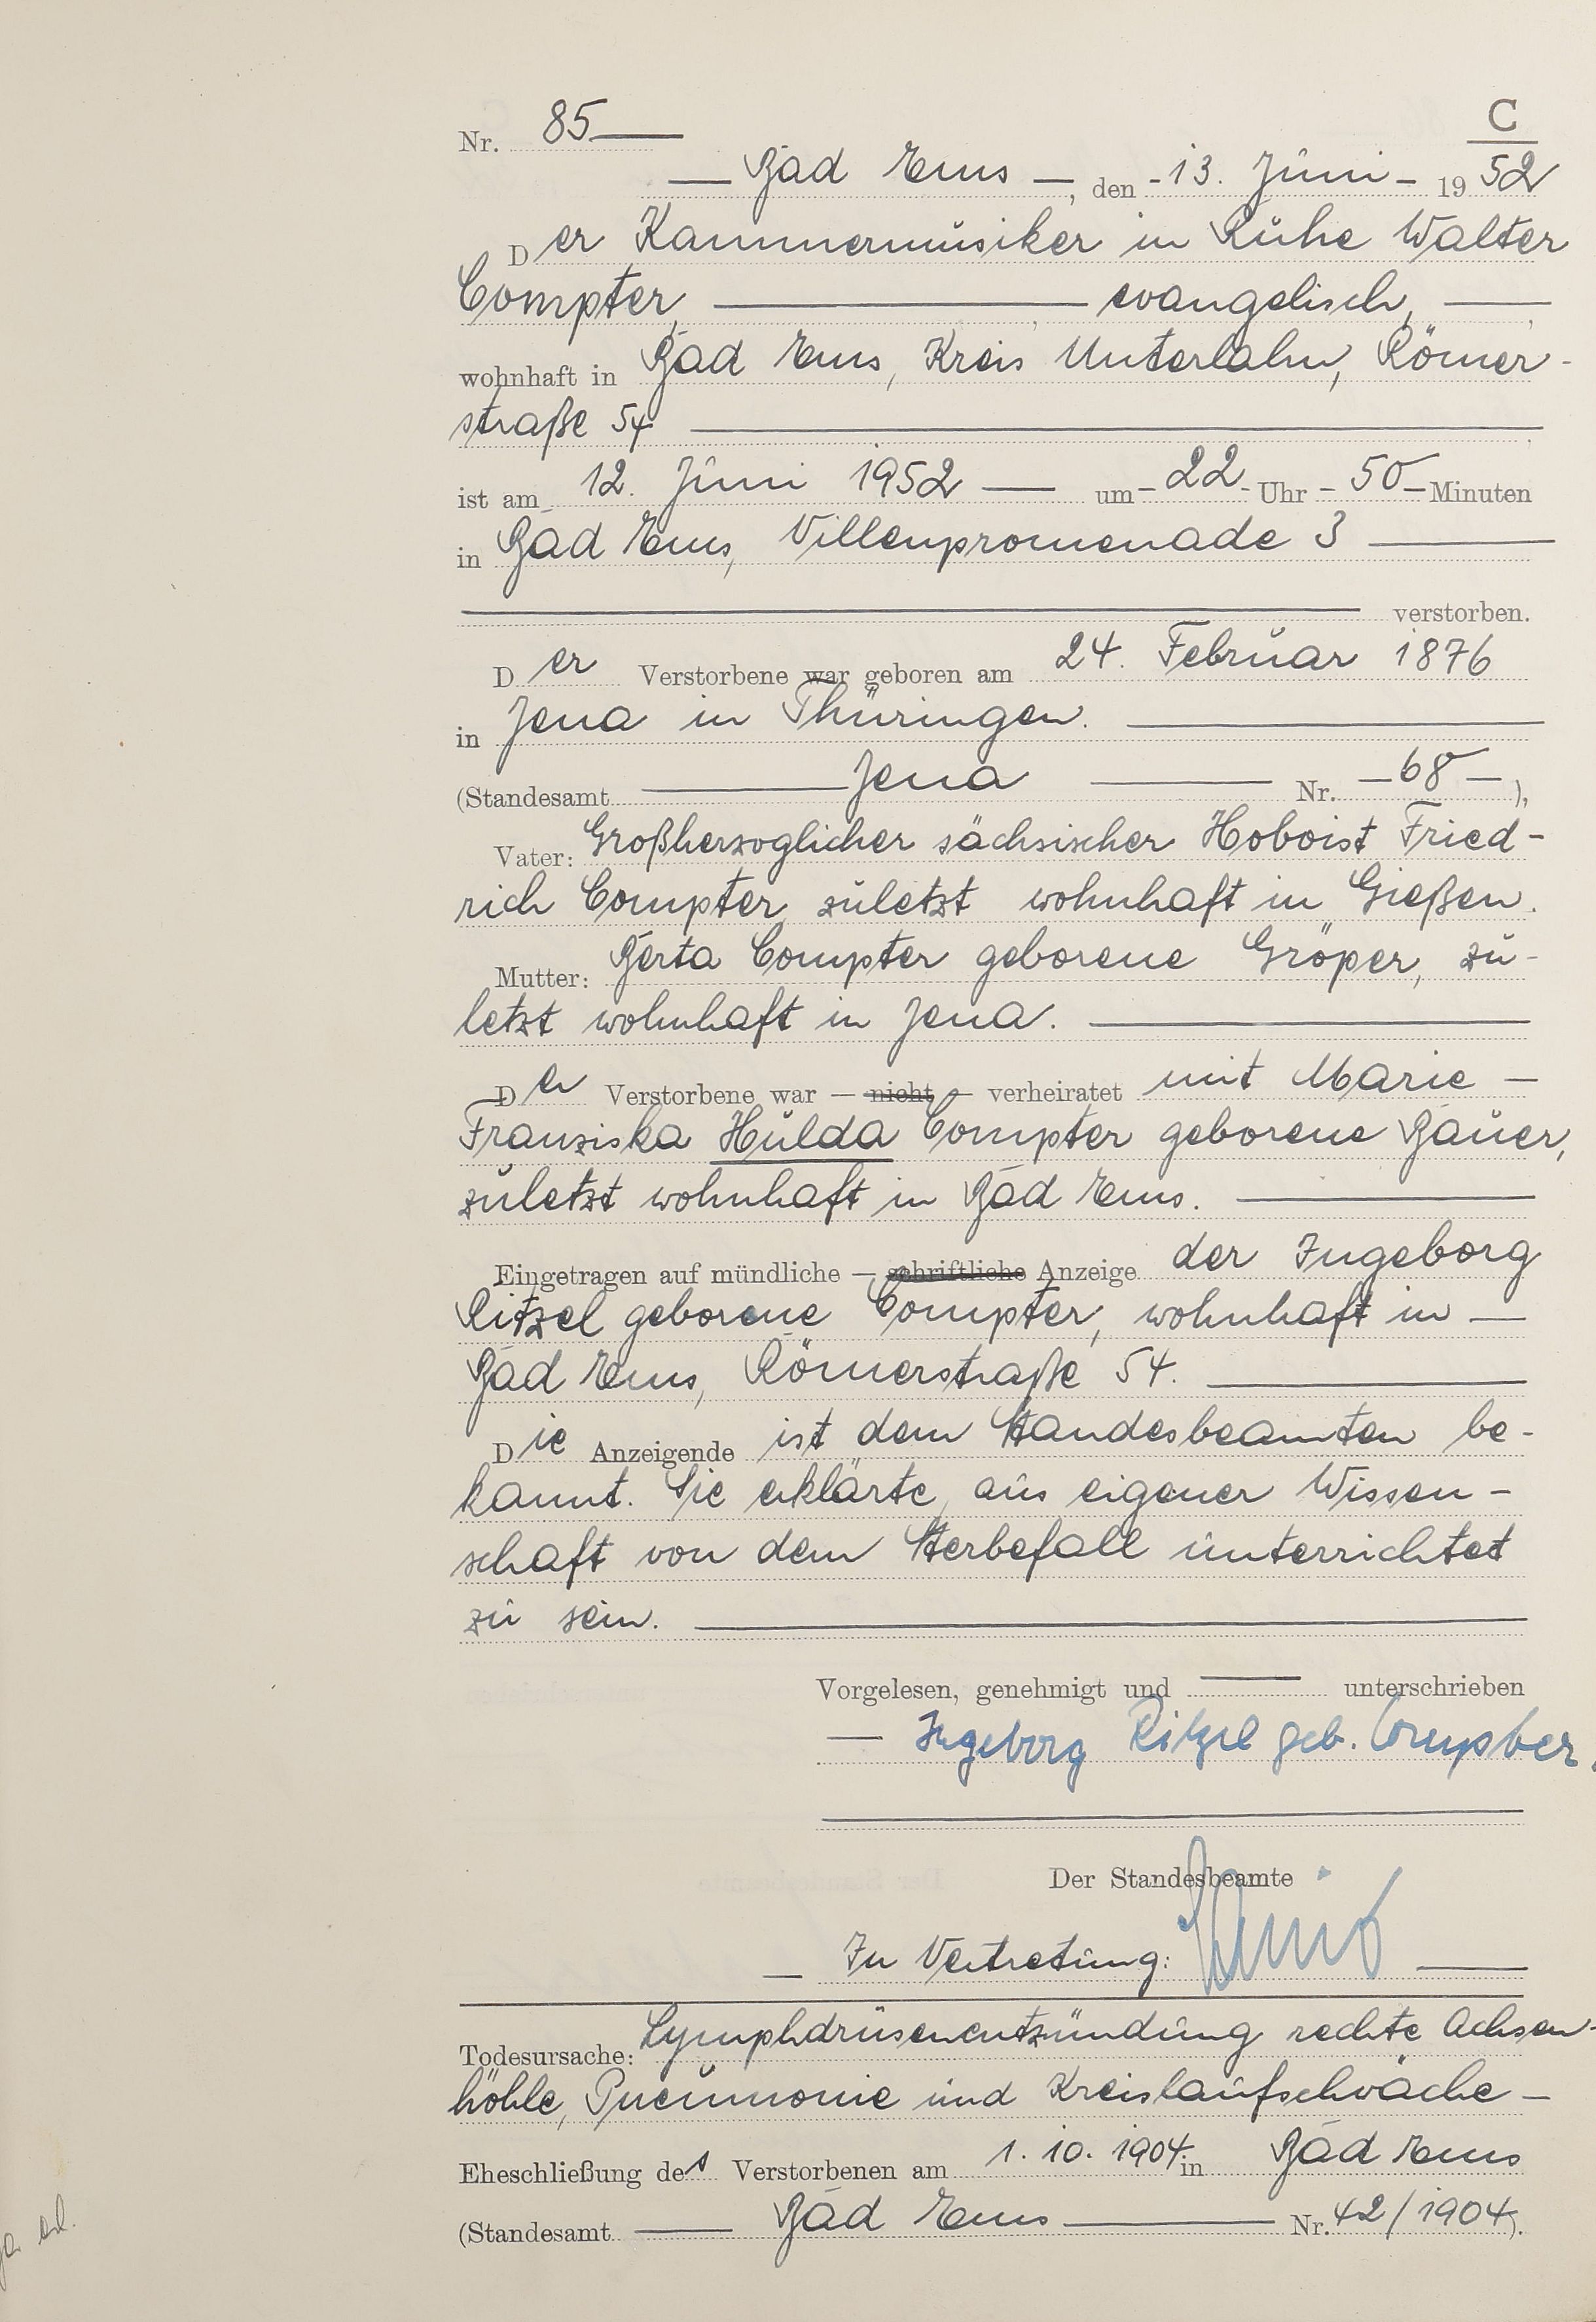 C
Nr. 85
Bad Ems, den 13. Juni 1952
Der Kammermusiker in Ruhe Walter
Compter, evangelisch,
wohnhaft in Bad Ems, Kreis Unterlahn, Römer-
straße 54
ist am 12. Juni 1952 um 22 Uhr 50 Minuten
in Bad Ems, Villenpromenade 3
verstorben.
Der Verstorbene war geboren am 24. Februar 1876
in Jena in Thüringen.
(Standesamt Jena Nr. 68),
Vater: Großherzoglicher sächsischer Hoboist Fried-
rich Compter, zuletzt wohnhaft in Gießen.
Mutter: Berta Compter geborene Gröper, zu-
letzt wohnhaft in Jena.
Der Verstorbene war — nicht — verheiratet mit Marie
Franziska Hulda Compter geborene Bauer,
zuletzt wohnhaft in Bad Ems.
Eingetragen auf mündliche — schriftliche Anzeige der Ingeborg
Ritzel geborene Compter, wohnhaft in
Bad Ems, Römerstraße 54.
Die Anzeigende ist dem Standesbeamten be-
kannt. Sie erklärte, aus eigener Wissen-
schaft von dem Sterbefall unterrichtet
zu sein.
Vorgelesen, genehmigt und unterschrieben
Ingeborg Ritzel geb. Compter.
Der Standesbeamte
In Vertretung:
Todesursache: Lymphdrüsenentzündung rechte Achsen-
höhle, Pneumonie und Kreislaufschwäche
Eheschließung des Verstorbenen am 1. 10. 1904 in Bad Ems
(Standesamt Bad Ems Nr. 42/1904).